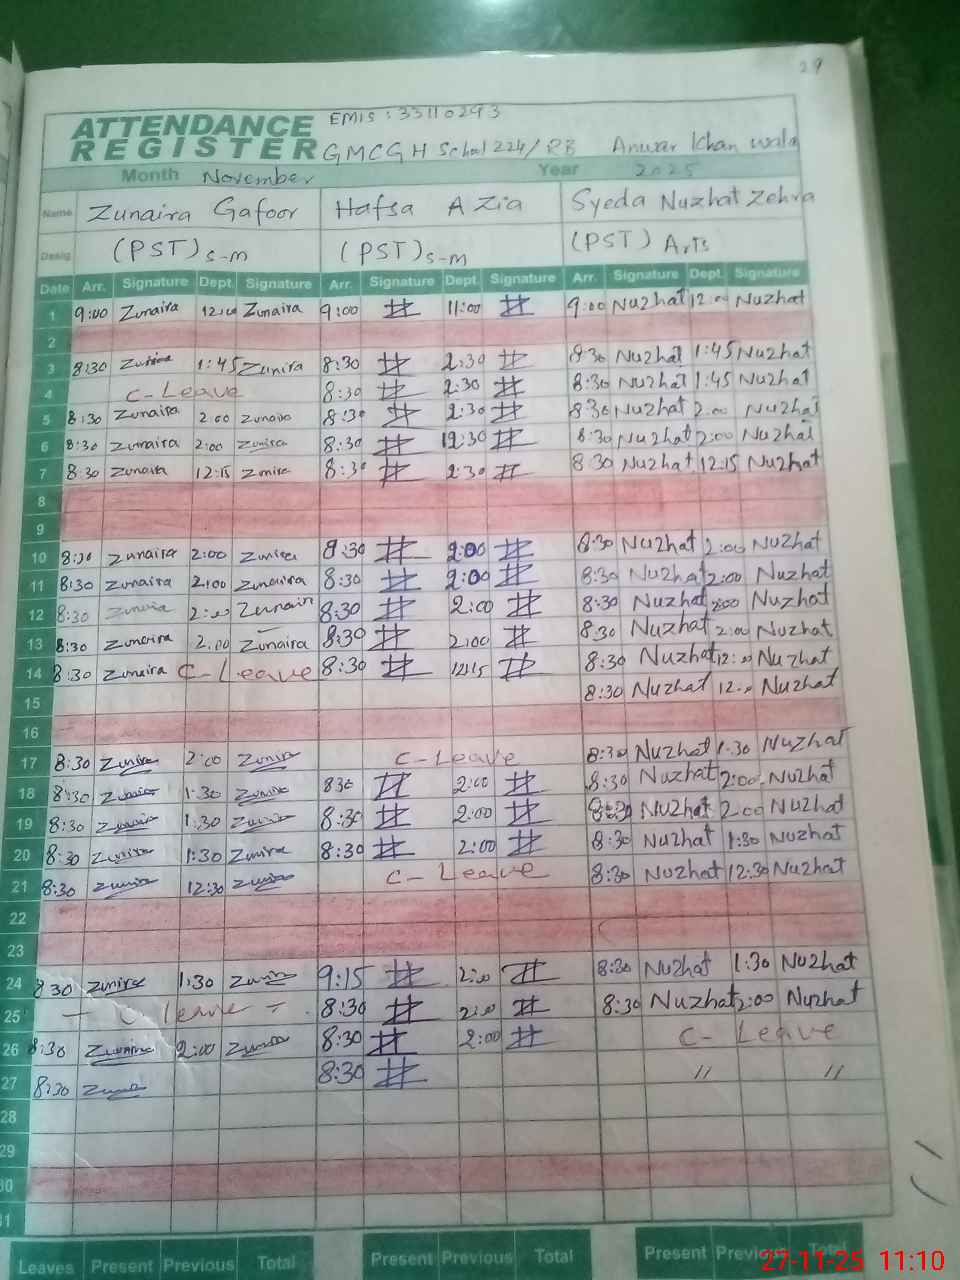 29
ATTENDANCE REGISTER
EMIS : 33110293
GMCGH School 224/RB Anwar Khan wala
Month November Year 2025
Name Zunaira Gafoor Hafsa Azia Syeda Nuzhat Zehra
Desig (PST) S-m (PST) S-m (PST) Arts
Date Arr. Signature Dept. Signature Arr. Signature Dept. Signature Arr. Signature Dept. Signature
1 9:00 Zunaira 12:00 Zunaira 9:00 # 11:00 # 9:00 Nuzhat 12:00 Nuzhat
2
3 8:30 Zunira 1:45 Zunira 8:30 # 2:30 # 8:30 Nuzhat 1:45 Nuzhat
4 C-Leave 8:30 # 2:30 # 8:30 Nuzhat 1:45 Nuzhat
5 8:30 Zunaira 2:00 Zunaira 8:30 # 2:30 # 8:30 Nuzhat 2:00 Nuzhat
6 8:30 Zunaira 2:00 Zunira 8:30 # 12:30 # 8:30 Nuzhat 2:00 Nuzhat
7 8:30 Zunaira 12:15 Zunira 8:30 # 2:30 # 8:30 Nuzhat 12:15 Nuzhat
8
9
10 8:30 Zunaira 2:00 Zunira 8:30 # 2:00 # 8:30 Nuzhat 2:00 Nuzhat
11 8:30 Zunaira 2:00 Zunaira 8:30 # 2:00 # 8:30 Nuzhat 2:00 Nuzhat
12 8:30 Zunaira 2:00 Zunair 8:30 # 2:00 # 8:30 Nuzhat 2:00 Nuzhat
13 8:30 Zunaira 2:00 Zunaira 8:30 # 2:00 # 8:30 Nuzhat 2:00 Nuzhat
14 8:30 Zunaira C-Leave 8:30 # 12:15 # 8:30 Nuzhat 12:00 Nuzhat
15 8:30 Nuzhat 12:00 Nuzhat
16
17 8:30 Zunira 2:00 Zunira C-Leave 8:30 Nuzhat 1:30 Nuzhat
18 8:30 Zunair 1:30 Zunira 830 # 2:00 # 8:30 Nuzhat 2:00 Nuzhat
19 8:30 Zunair 1:30 Zunair 8:30 # 2:00 # 8:30 Nuzhat 2:00 Nuzhat
20 8:30 Zunira 1:30 Zunira 8:30 # 2:00 # 8:30 Nuzhat 1:30 Nuzhat
21 8:30 Zunira 12:30 Zunira C-Leave 8:30 Nuzhat 12:30 Nuzhat
22
23
24 8 30 Zunira 1:30 Zunira 9:15 # 2:00 # 8:30 Nuzhat 1:30 Nuzhat
25 - C. Leave - 8:30 # 2:00 # 8:30 Nuzhat 2:00 Nuzhat
26 8:30 Zunaira 2:00 Zunira 8:30 # 2:00 # C-Leave
27 8:30 8:30 # " "
28
29
30
31
Leaves Present Previous Total Present Previous Total Present Previous Total
27-11-25 11:10